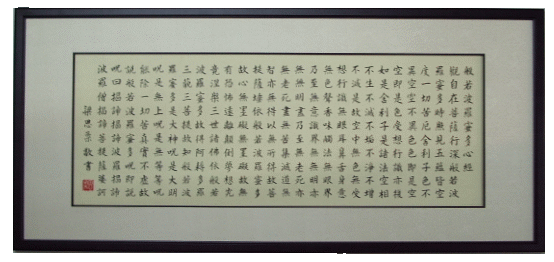 般若波羅蜜多心經
觀自在菩薩行深般若波
羅蜜多時照見五蘊皆空
度一切苦厄舍利子色不
異空空不異色色即是空
空即是色受想行識亦復
如是舍利子是諸法空相
不生不滅不垢不淨不增
不減是故空中無色無受
想行識無眼耳鼻舌身意
無色聲香味觸法無眼界
乃至無意識界無無明亦
無無明盡乃至無老死亦
無老死盡無苦集滅道無
智亦無得以無所得故菩
提薩埵依般若波羅蜜多
故心無罣礙無罣礙故無
有恐怖遠離顛倒夢想究
竟涅槃三世諸佛依般若
波羅蜜多故得阿耨多羅
三藐三菩提故知般若波
羅蜜多是大神咒是大明
咒是無上咒是無等等咒
能除一切苦真實不虛故
說般若波羅蜜多咒即說
咒曰揭諦揭諦波羅揭諦
波羅僧揭諦菩提薩婆訶
梁思敬書